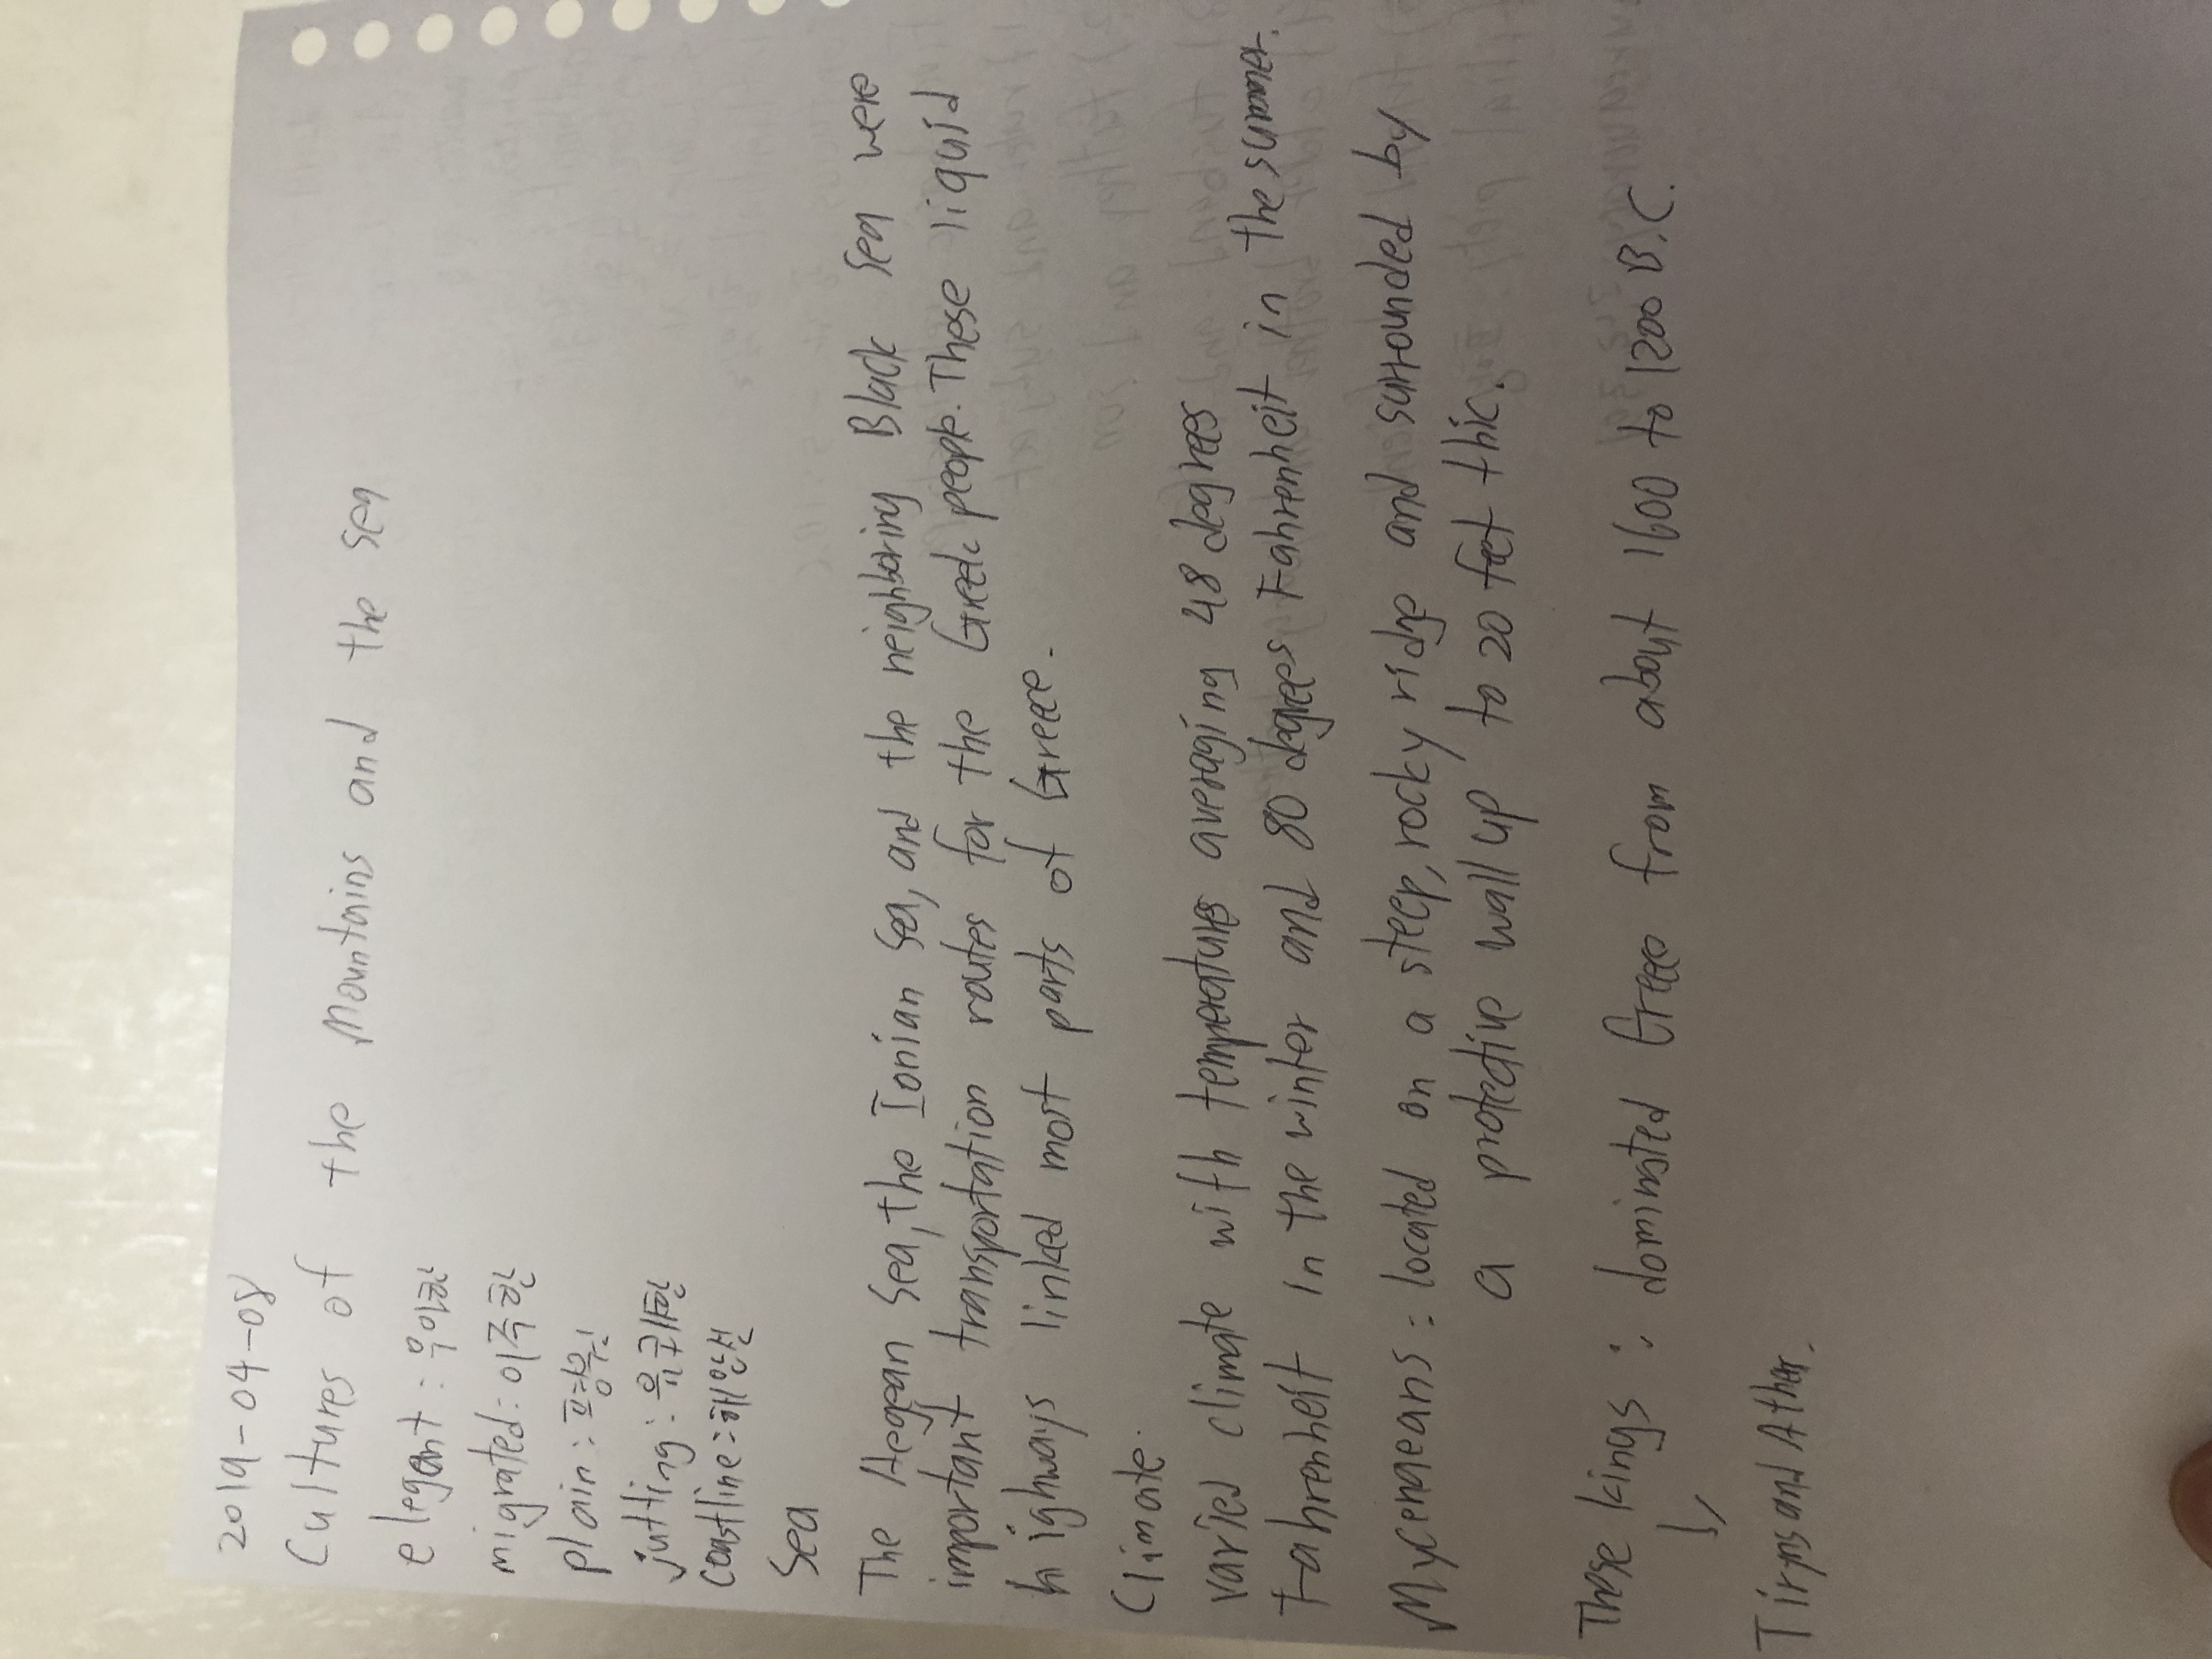 2019-04-08
Cultures of the Mountains and the sea
elegant : 우아한
migrated : 이주한
plain : 평원
jutting : 육귀한
coastline : 해안선
Sea
The Aegean Sea, the Ionian Sea, and the neighboring Black Sea were
important transportation routes for the Greek people. These liquid
highways linked most parts of Greece.
Climate.
varied climate with temperatures averaging 48 degrees
Fahrenheit in the winter and 80 degrees Fahrenheit in the summer.
Mycenaeans : located on a steep, rocky ridge and surrounded by
a protective wall up to 20 feet thic.
These kings : dominated Greece from about 1600 to 1200 B.C.
Tiryns and Athen.